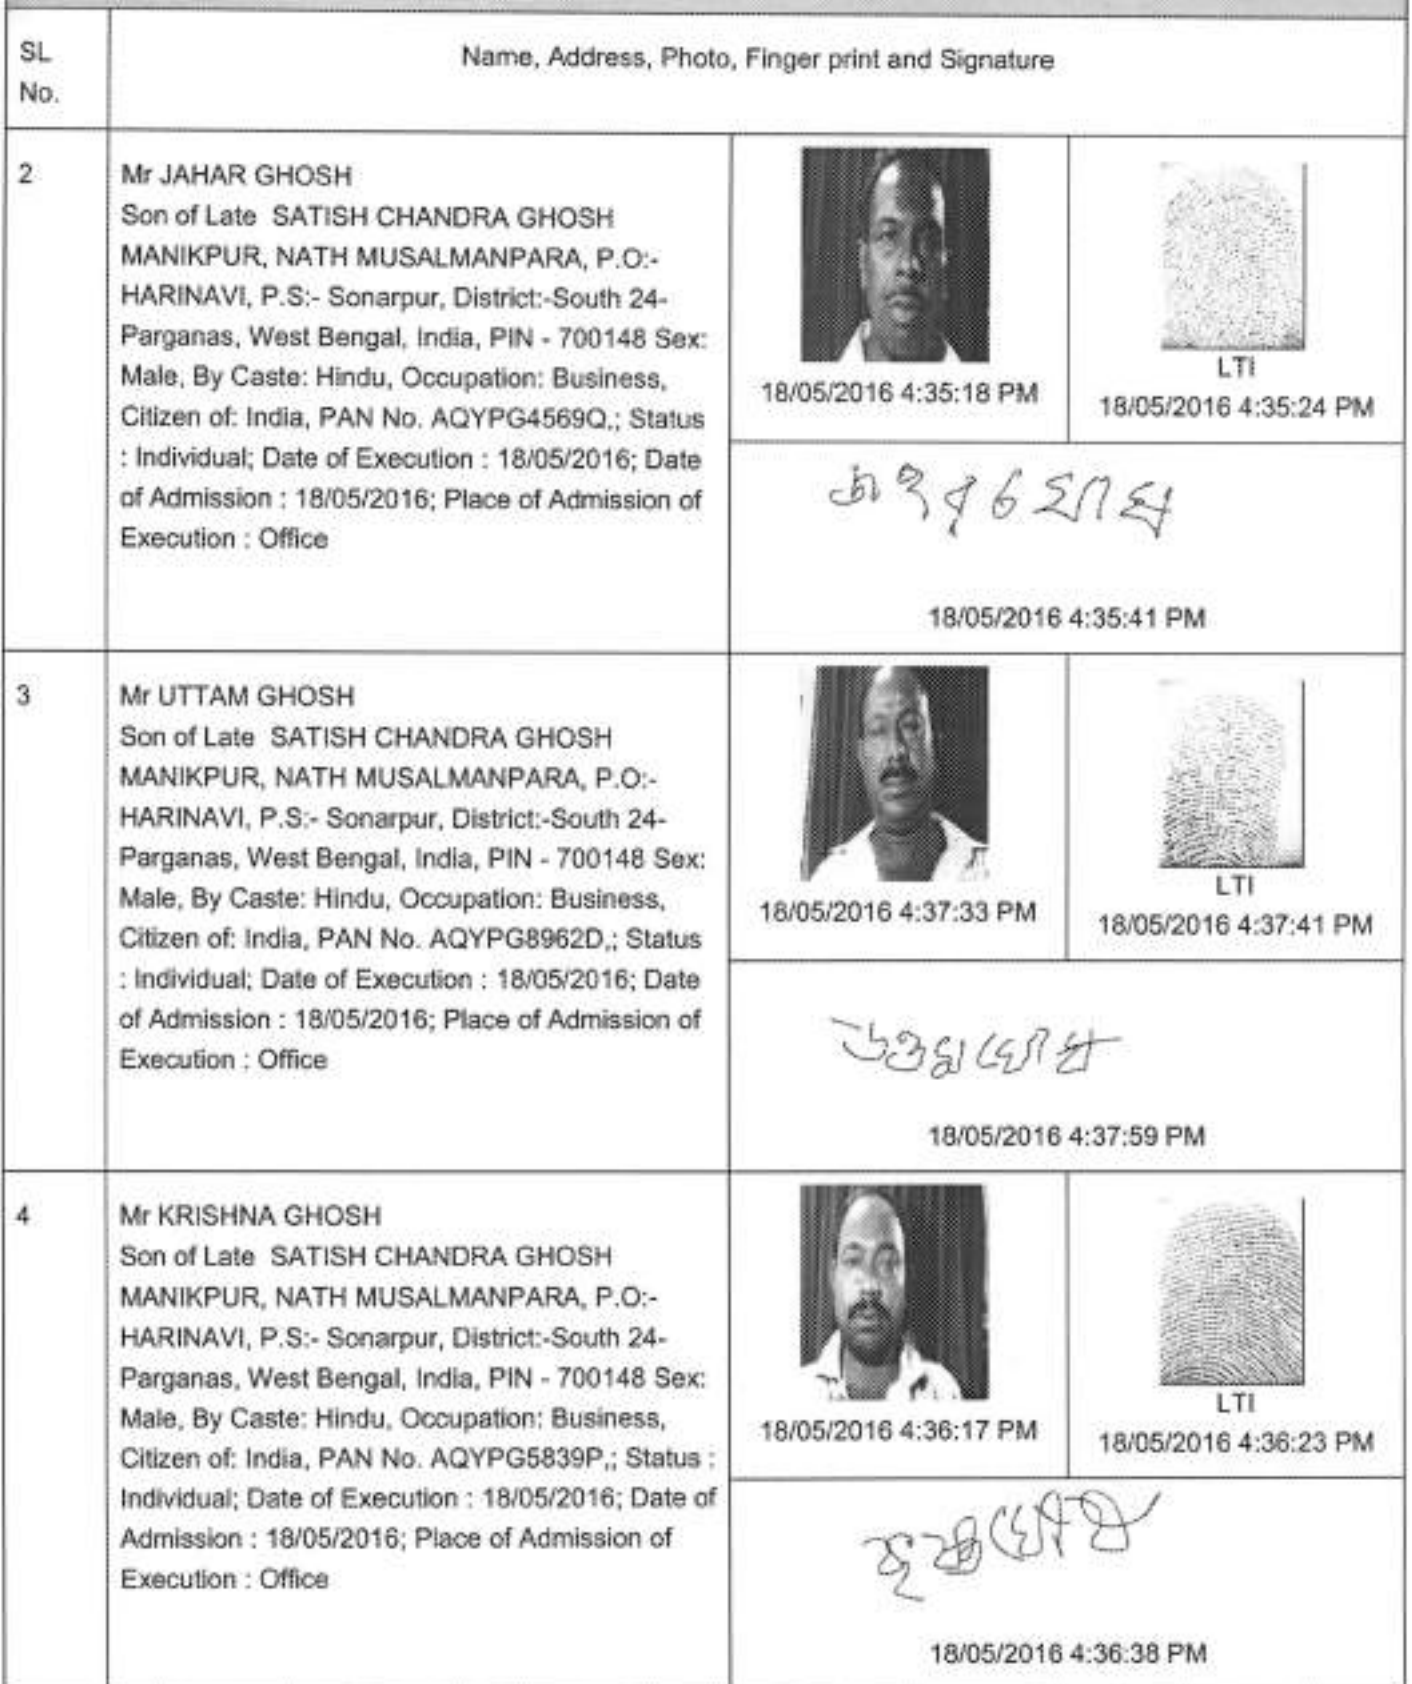 SL No.
Name, Address, Photo, Finger print and Signature
2
Mr JAHAR GHOSH
Son of Late SATISH CHANDRA GHOSH
MANIKPUR, NATH MUSALMANPARA, P.O:-
HARINAVI, P.S:- Sonarpur, District:-South 24-
Parganas, West Bengal, India, PIN - 700148 Sex:
Male, By Caste: Hindu, Occupation: Business,
Citizen of: India, PAN No. AQYPG4569Q,; Status
: Individual; Date of Execution : 18/05/2016; Date
of Admission : 18/05/2016; Place of Admission of
Execution : Office
18/05/2016 4:35:18 PM
LTI
18/05/2016 4:35:24 PM
জহর ঘোষ
18/05/2016 4:35:41 PM
3
Mr UTTAM GHOSH
Son of Late SATISH CHANDRA GHOSH
MANIKPUR, NATH MUSALMANPARA, P.O:-
HARINAVI, P.S:- Sonarpur, District:-South 24-
Parganas, West Bengal, India, PIN - 700148 Sex:
Male, By Caste: Hindu, Occupation: Business,
Citizen of: India, PAN No. AQYPG8962D,; Status
: Individual; Date of Execution : 18/05/2016; Date
of Admission : 18/05/2016; Place of Admission of
Execution : Office
18/05/2016 4:37:33 PM
LTI
18/05/2016 4:37:41 PM
উত্তম ঘোষ
18/05/2016 4:37:59 PM
4
Mr KRISHNA GHOSH
Son of Late SATISH CHANDRA GHOSH
MANIKPUR, NATH MUSALMANPARA, P.O:-
HARINAVI, P.S:- Sonarpur, District:-South 24-
Parganas, West Bengal, India, PIN - 700148 Sex:
Male, By Caste: Hindu, Occupation: Business,
Citizen of: India, PAN No. AQYPG5839P,; Status :
Individual; Date of Execution : 18/05/2016; Date of
Admission : 18/05/2016; Place of Admission of
Execution : Office
18/05/2016 4:36:17 PM
LTI
18/05/2016 4:36:23 PM
কৃষ্ণ ঘোষ
18/05/2016 4:36:38 PM